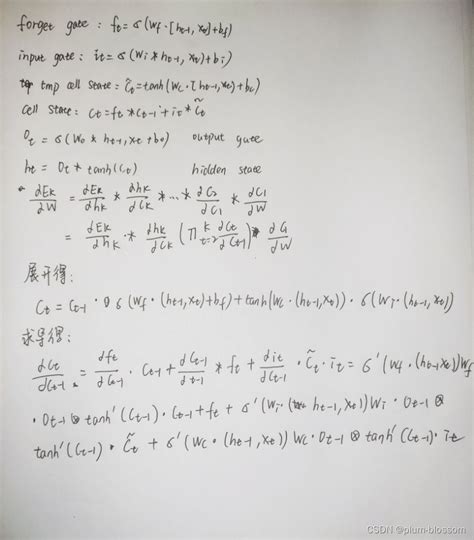 forget gate : ft = σ(Wf · [ht-1, xt] + bf)
input gate : it = σ(Wi * ht-1, xt) + bi)
tmp cell state : C̃t = tanh(Wc · [ht-1, xt) + bc)
cell state : Ct = ft * Ct-1 + it * C̃t
Ot = σ(Wo * ht-1, xt + bo) output gate
ht = Ot * tanh(Ct) hidden state
∂Ek/∂W = ∂Ek/∂hk * ∂hk/∂Ck * ... * ∂C2/∂C1 * ∂C1/∂W
= ∂Ek/∂hk * ∂hk/∂Ck (∏ k t=2 ∂Ct/∂Ct-1) * ∂C1/∂W
展开得:
Ct = Ct-1 · σ(Wf · (ht-1, xt) + bf) + tanh(Wc · (ht-1, xt)) · σ(Wi · (ht-1, xt)
求导得:
∂Ct/∂Ct-1 = ∂ft/∂Ct-1 · Ct-1 + ∂Ct-1/∂t-1 * ft + ∂it/∂Ct-1 · C̃t · it = σ'(Wf · (ht-1, xt)) Wf
· Ot-1 ⊗ tanh'(Ct-1) · Ct-1 + ft + σ'(Wi · ht-1, xt)) Wi · Ot-1 ⊗
tanh'(Ct-1) · C̃t + σ'(Wc · (ht-1, xt)) Wc · Ot-1 ⊗ tanh'(Ct-1) · it
CSDN @plum-blossom